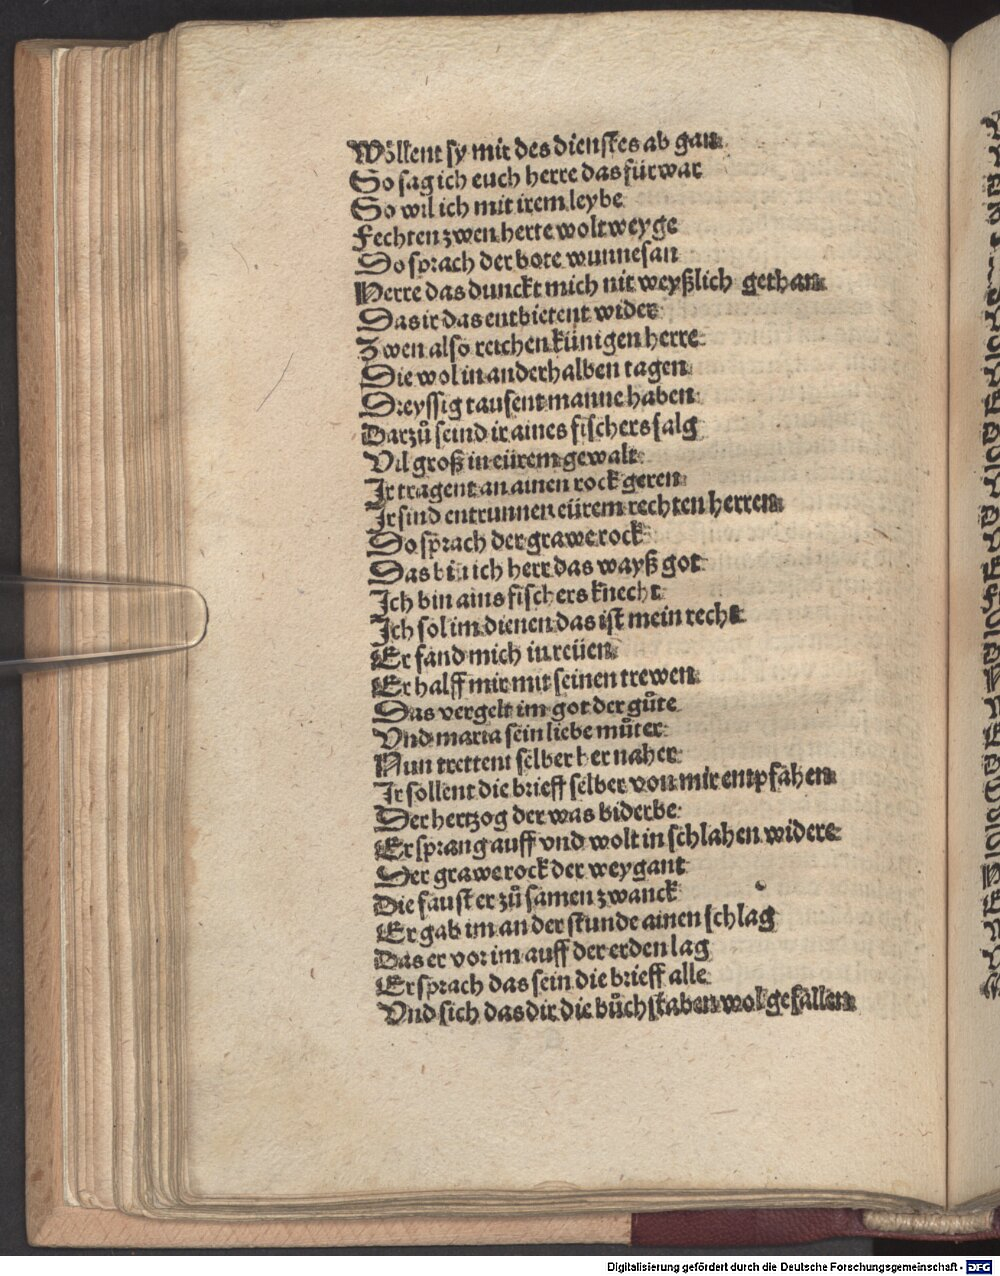 Wöllent sy mir des dienstes ab gan
So sag ich euch herre das für war
So wil ich mit irem leybe
Fechten zwen herte wolt weyge
Do sprach der bote wunnesan
Herre das dunckt mich nit weyßlich gethan
Das ir das entbietent wider
Zwen also reichen künigen herre
Die wol in anderhalben tagen
Dreyssig tausent manne haben
Darzů seind ir aines fischers salg
Vil groß in eürem gewalt
Ir tragent an ainen rock geren
Ir sind entrunnen eürem rechten herren
Do sprach der grawe rock
Das bin ich herr das wayß got
Ich bin ains fischers knecht
Ich sol im dienen das ist mein recht
Er fand mich in reüen
Er halff mir mit seinen trewen
Das vergelt im got der gůte
Vnd maria sein liebe můter
Nun trettent selber her naher
Ir sollent die brieff selber von mir empfahen
Der hertzog der was biderbe
Er sprang auff vnd wolt in schlahen widere
Der grawe rock der weygant
Die faust er zů samen zwanck
Er gab im an der stunde ainen schlag
Das er vor im auff der erden lag
Er sprach das sein die brieff alle
Vnd sich das dir die bůchstaben wol gefallen
Digitalisierung gefördert durch die Deutsche Forschungsgemeinschaft - DFG